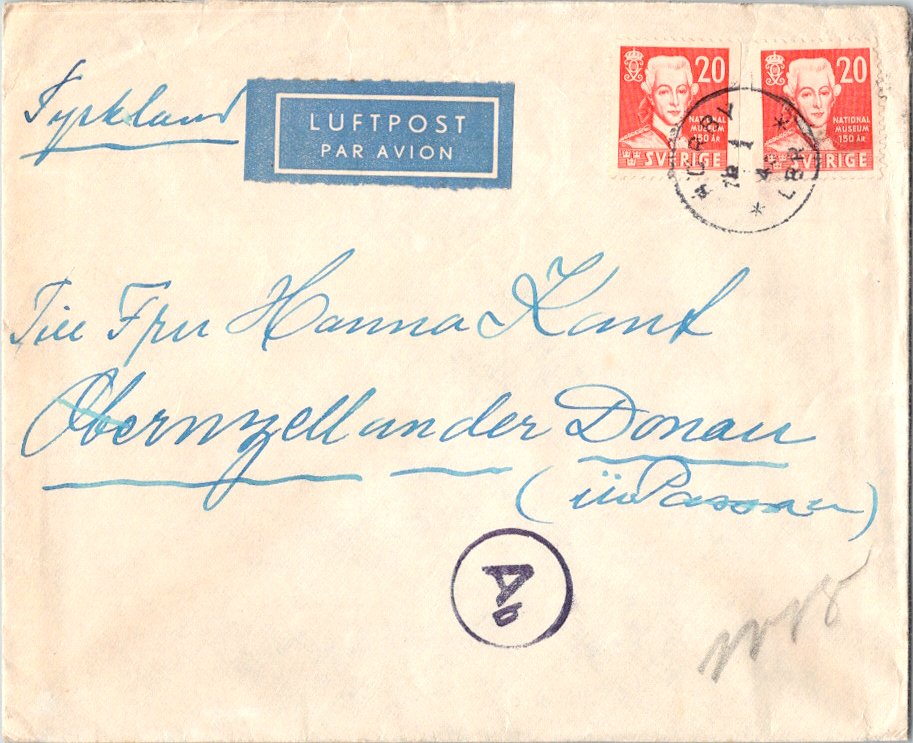 Tyskland
LUFTPOST
PAR AVION
20
NATIONAL
MUSEUM
150 ÅR
SVERIGE
20
NATIONAL
MUSEUM
150 ÅR
SVERIGE
LBR
Till Fru Hanna Kant
Obernzell an der Donau
(üb Passau)
Ab